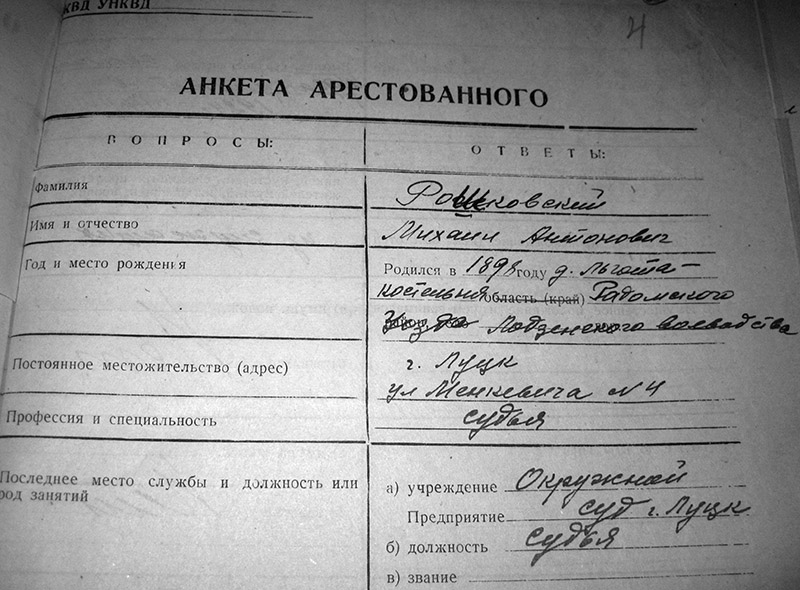 КВД УНКВД
4
АНКЕТА АРЕСТОВАННОГО
ВОПРОСЫ:
ОТВЕТЫ:
Фамилия
Рошковский
Имя и отчество
Михаил Антонович
Год и место рождения
Родился в 1898 году д. Льгота-
Костельня область (край) Радомского
уезда Лодзенского воеводства
Постоянное местожительство (адрес)
г. Луцк
ул Менкевича N 4
Профессия и специальность
судья
Последнее место службы и должность или
род занятий
а) учреждение Окружной
Предприятие суд г. Луцк
б) должность судья
в) звание